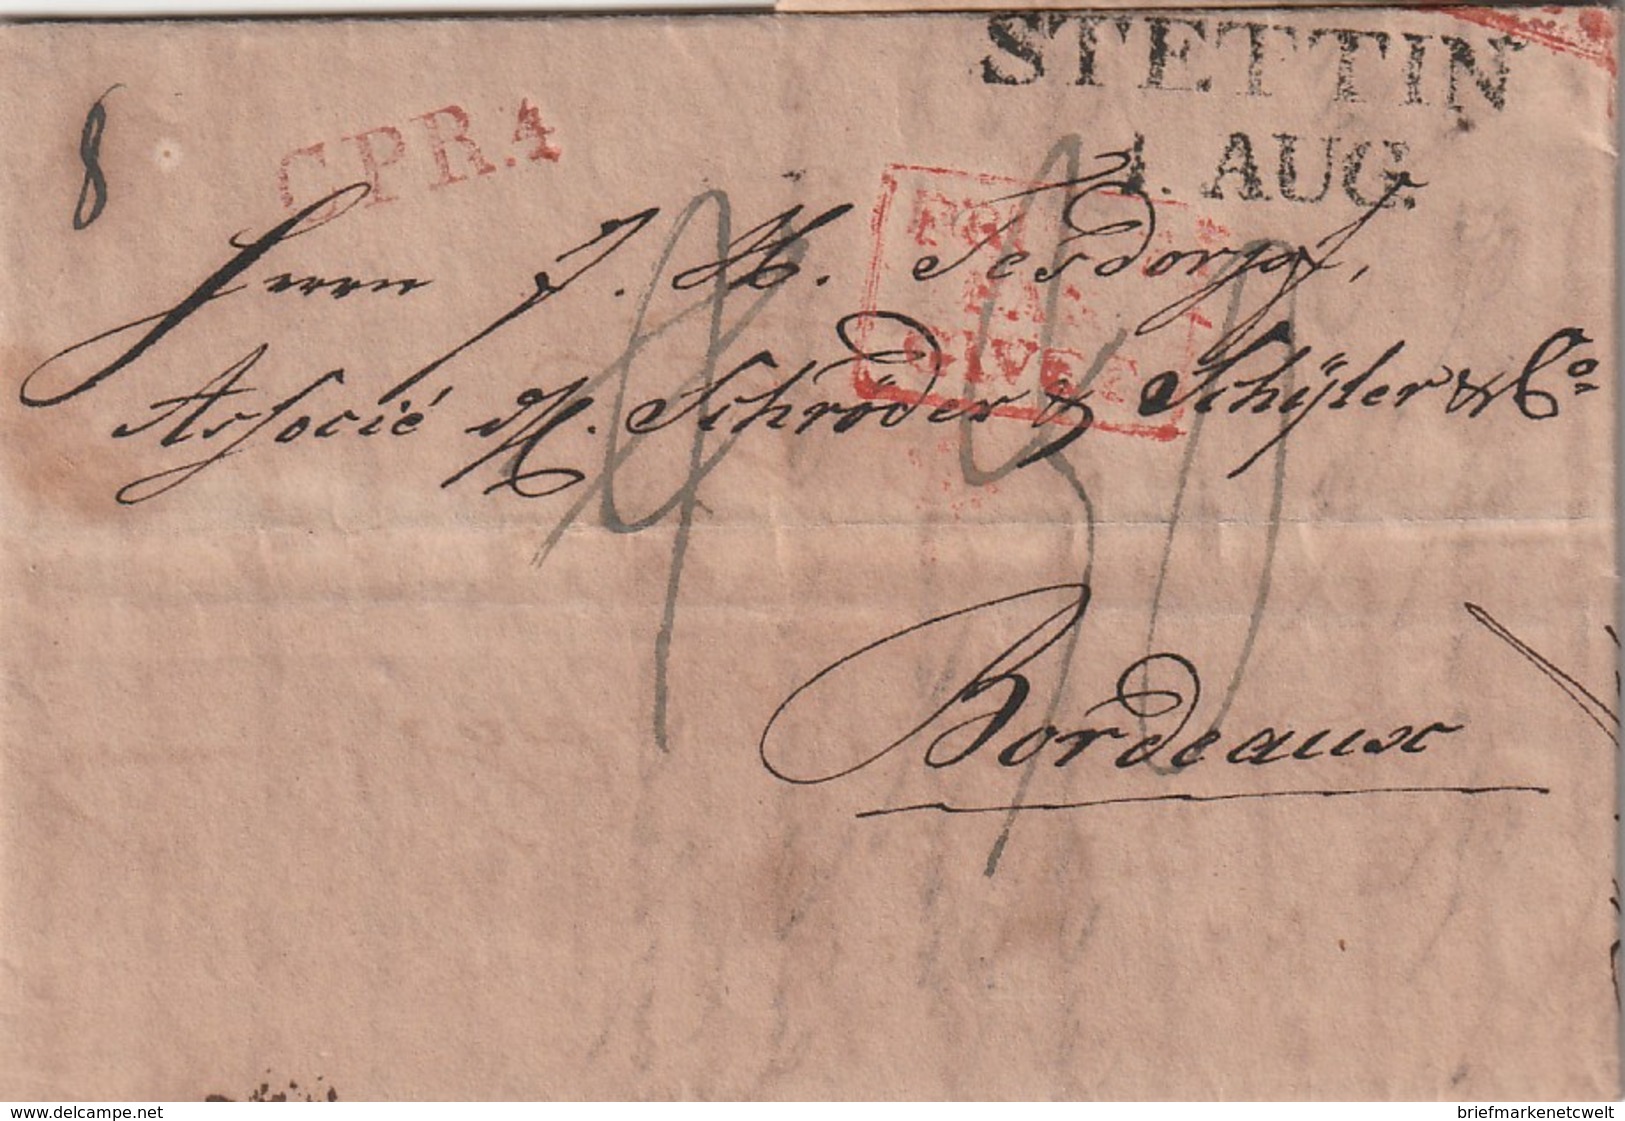 STETTIN
1. AUG.
8
C.P.R.4
PAR
GIVET
Herrn J. H. Tesdorpf,
Associé H. Schröder & Schÿler & Co.
Bordeaux
www.delcampe.net
briefmarkenetcwelt